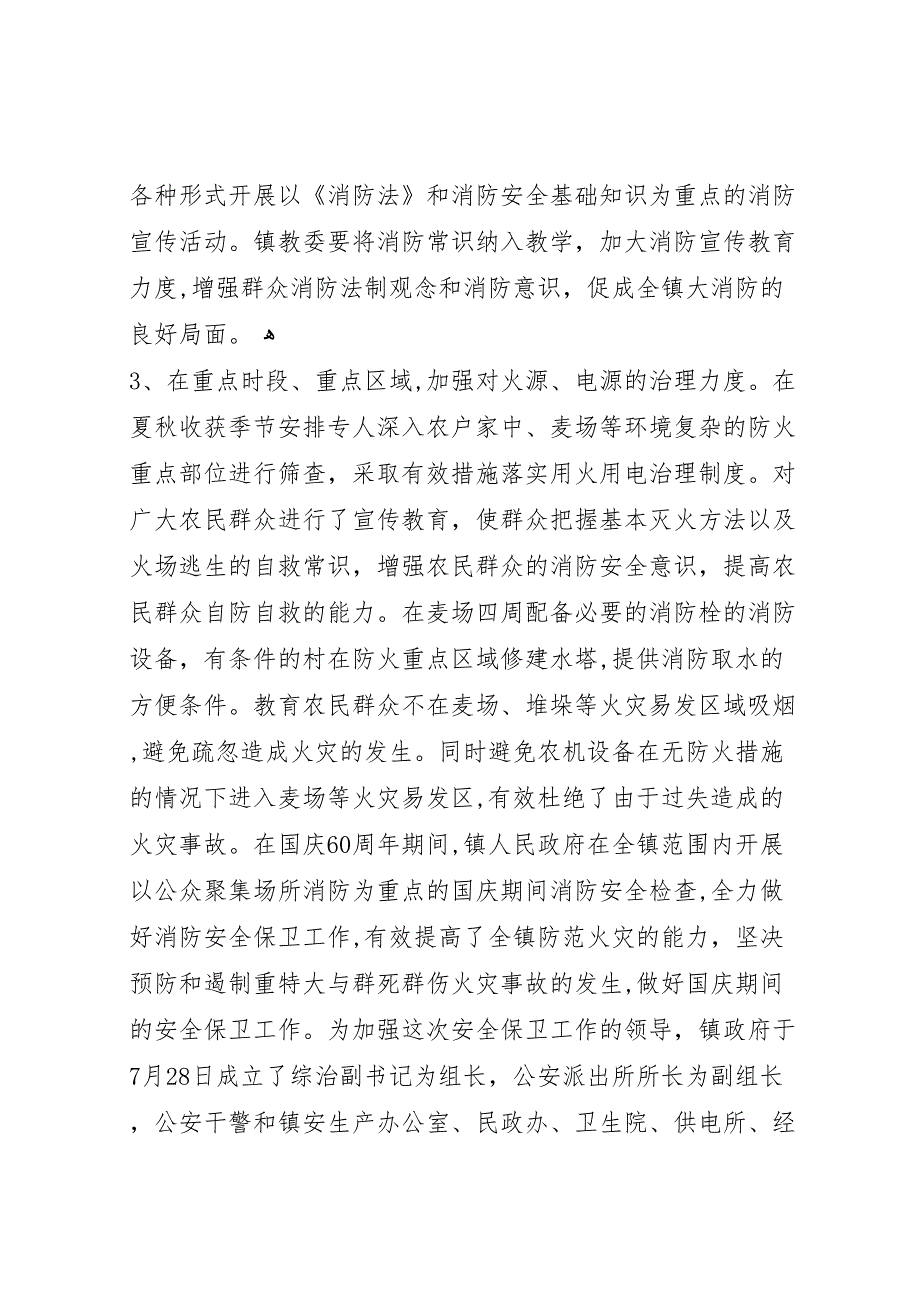 各种形式开展以《消防法》和消防安全基础知识为重点的消防
宣传活动。镇教委要将消防常识纳入教学，加大消防宣传教育
力度,增强群众消防法制观念和消防意识，促成全镇大消防的
良好局面。 ﻫ
3、在重点时段、重点区域,加强对火源、电源的治理力度。在
夏秋收获季节安排专人深入农户家中、麦场等环境复杂的防火
重点部位进行筛查，采取有效措施落实用火用电治理制度。对
广大农民群众进行了宣传教育，使群众把握基本灭火方法以及
火场逃生的自救常识，增强农民群众的消防安全意识，提高农
民群众自防自救的能力。在麦场四周配备必要的消防栓的消防
设备，有条件的村在防火重点区域修建水塔,提供消防取水的
方便条件。教育农民群众不在麦场、堆垛等火灾易发区域吸烟
,避免疏忽造成火灾的发生。同时避免农机设备在无防火措施
的情况下进入麦场等火灾易发区,有效杜绝了由于过失造成的
火灾事故。在国庆60周年期间,镇人民政府在全镇范围内开展
以公众聚集场所消防为重点的国庆期间消防安全检查,全力做
好消防安全保卫工作,有效提高了全镇防范火灾的能力，坚决
预防和遏制重特大与群死群伤火灾事故的发生,做好国庆期间
的安全保卫工作。为加强这次安全保卫工作的领导，镇政府于
7月28日成立了综治副书记为组长，公安派出所所长为副组长
，公安干警和镇安生产办公室、民政办、卫生院、供电所、经